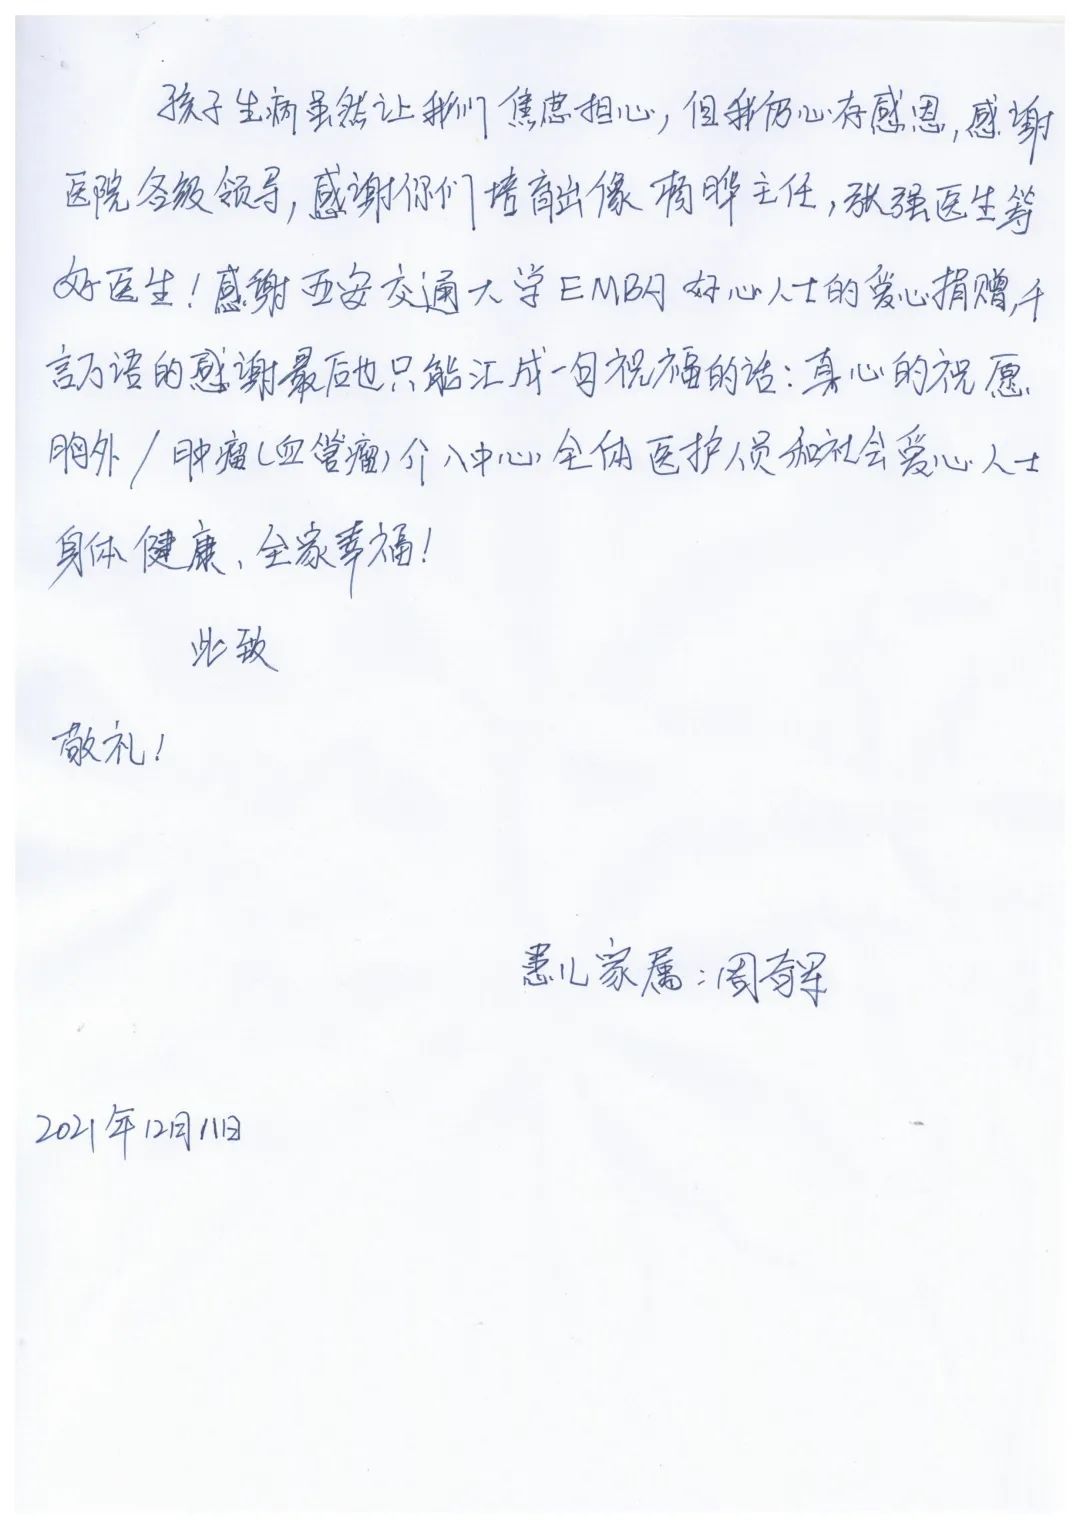 孩子生病虽然让我们焦虑担心，但我仍心存感恩，感谢
医院各级领导，感谢你们培育出像杨晔主任，张强医生等
好医生！感谢西安交通大学EMBA好心人士的爱心捐赠，千
言万语的感谢最后也只能汇成一句祝福的话：真心的祝愿
胸外/肿瘤(血管瘤)介入中心全体医护人员和社会爱心人士
身体健康、全家幸福！
此致
敬礼！
患儿家属：周有军
2021年12月11日